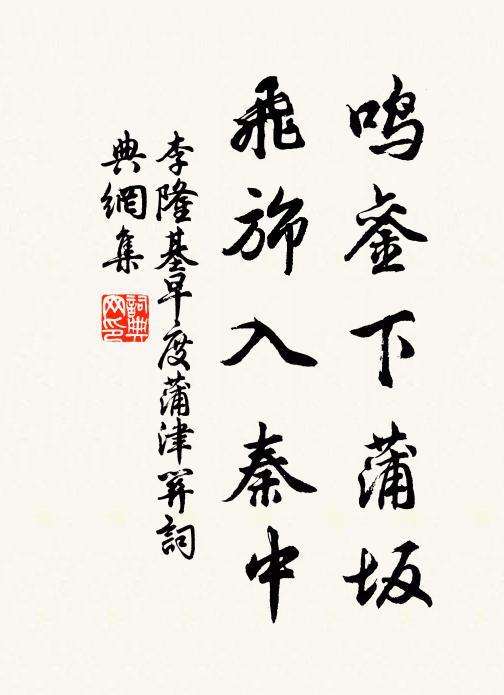 鸣銮下蒲坂
飛旆入秦中
李隆基早度蒲津關詞
典網集
詞典
网印